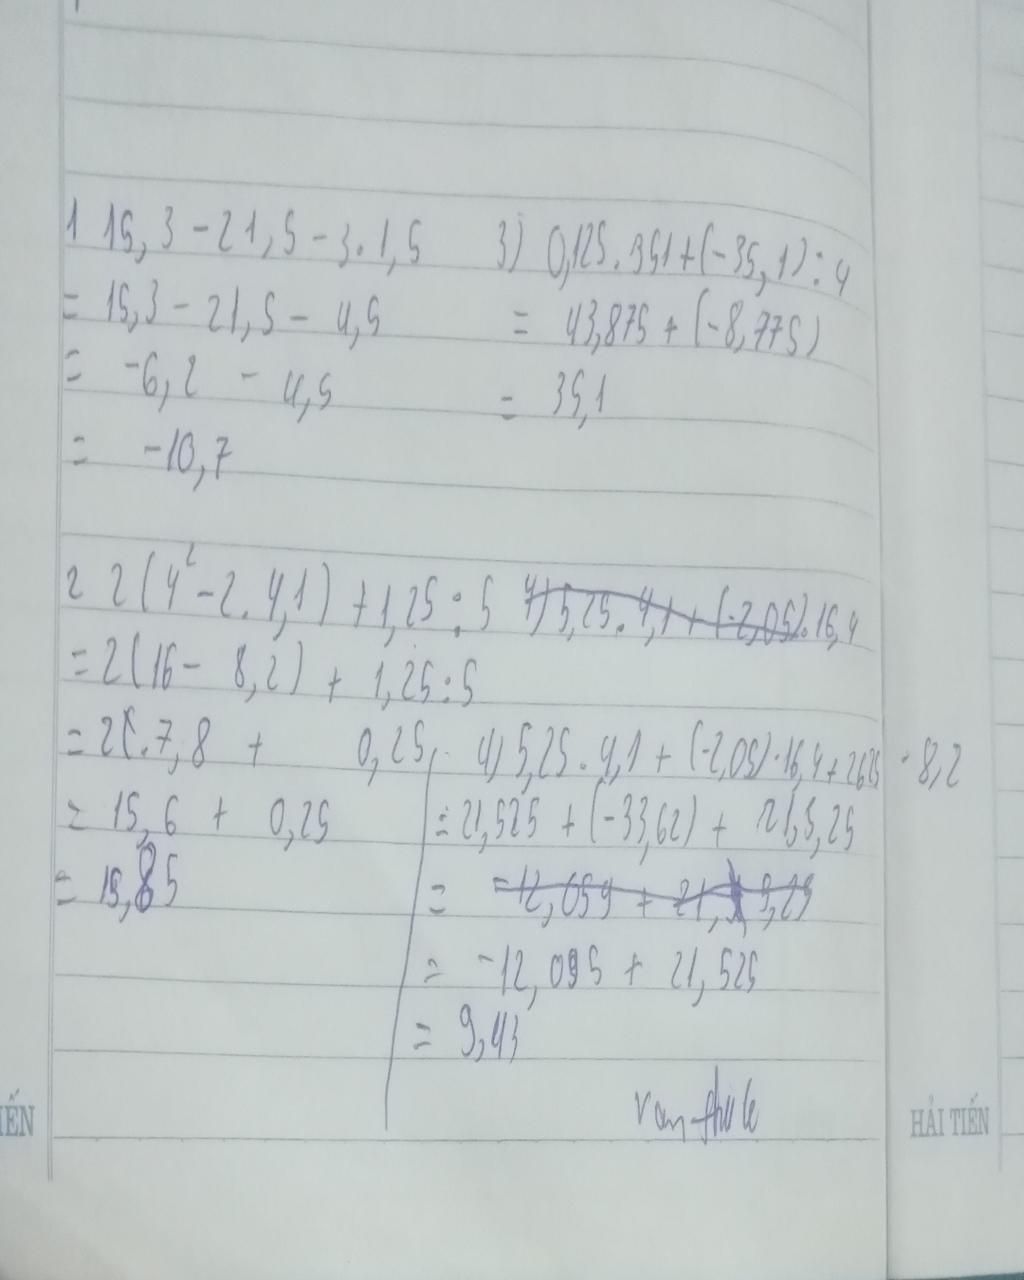 1 15,3 - 21,5 - 3.1,5
= 15,3 - 21,5 - 4,5
= -6,2 - 4,5
= -10,7
3) 0,125.351+(-35,1):4
= 43,875 + (-8,775)
= 35,1
2 2(4² - 2.4,1) + 1,25:5
= 2(16 - 8,2) + 1,25:5
= 2.7,8 + 0,25
= 15,6 + 0,25
= 15,85
4) 5,25.4,1 + (-2,05).16,4
4) 5,25.4,1 + (-2,05).16,4 + 2625 .8,2
= 21,525 + (-33,62) + 21,5,25
= -12,059 + 21,
= -12,095 + 21,525
= 9,43
HẢI TIẾN
IẾN